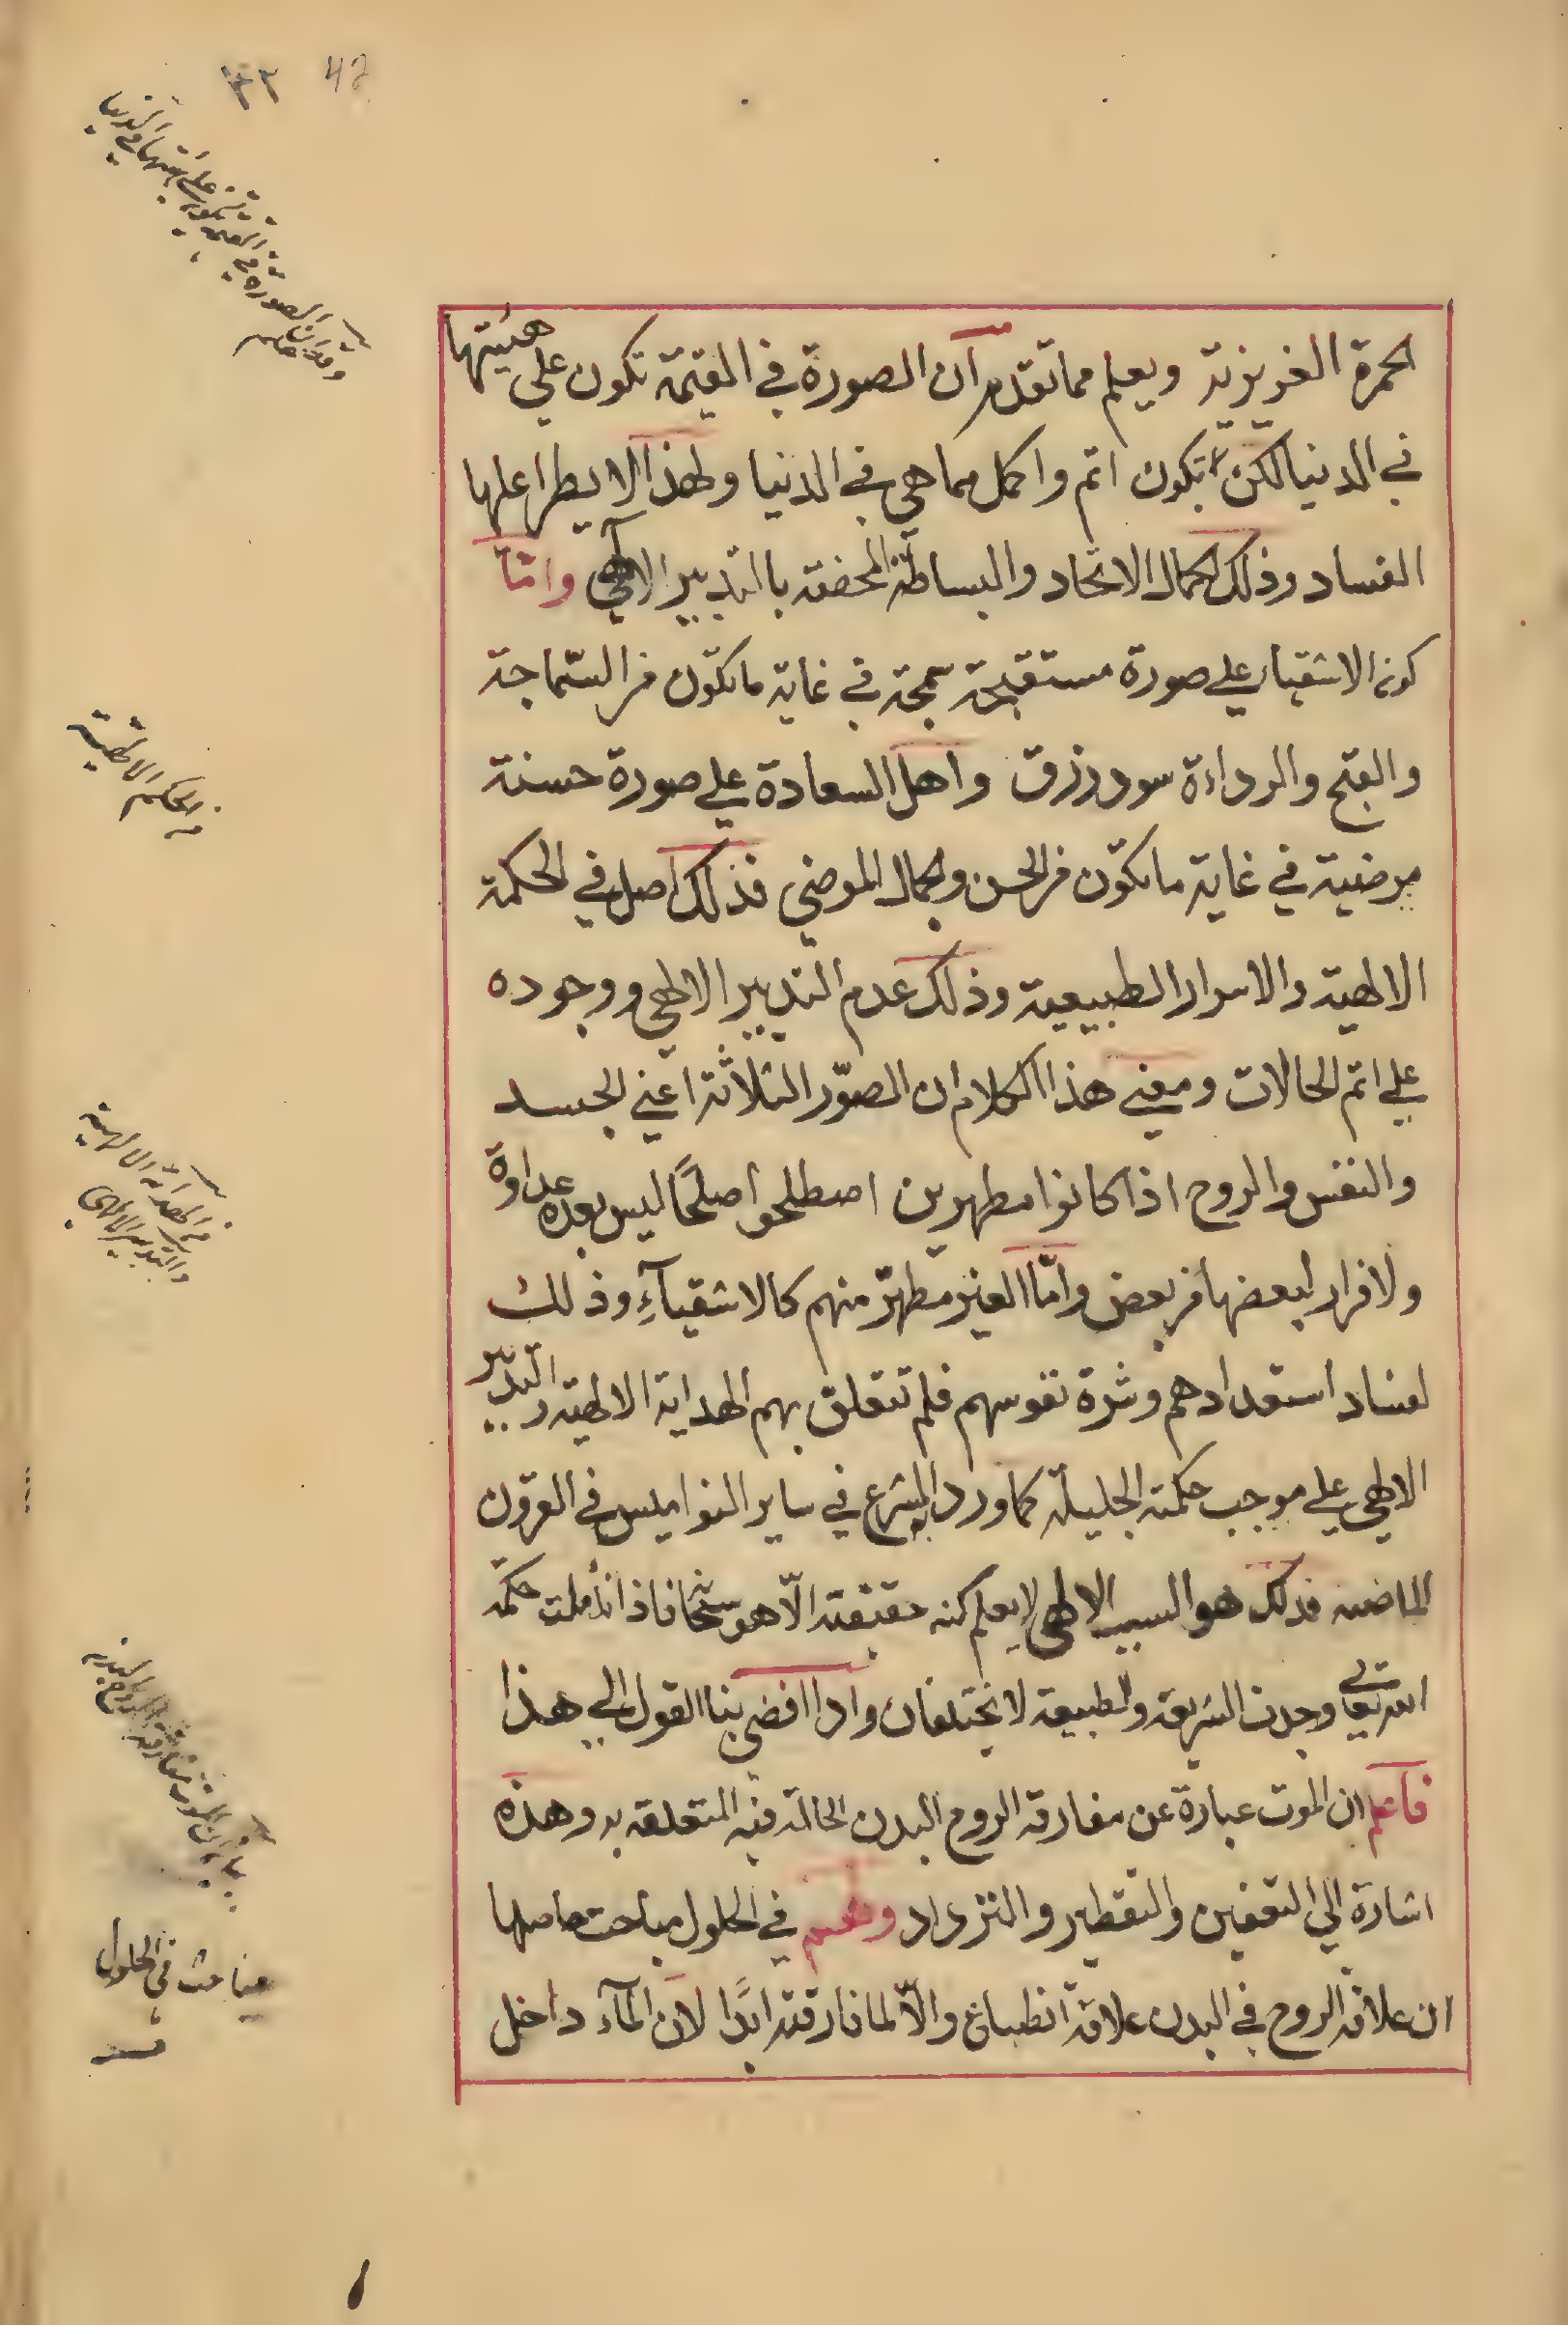 ٤٢ ٣٢
الحمرة الغريزية ويعلم مما تقدم ان الصورة في القيمة تكون علي هيئتها
في الدنيا لكن تكون اتم واكمل مما هي في الدنيا ولهذا لا يطرا عليها
الفساد وذلك لكمال الاتحاد والبساطة المحضة بالتدبير الالهي وامّا
كون الاشقياء علي صورة مستقبحة سمجة في غاية ما تكون من السّماجة
والقبح والرداءة سود زرق واهل السعادة علي صورة حسنة
مرضية في غاية ما تكون من الحسن وكمال الموضي فذلك اصل في الحكمة
الالهية والاسرار الطبيعية وذلك عدم التدبير الالهي ووجوده
علي اتم الحالات ومعني هذا الكلام ان الصوّر الثلاثة اعني الجسد
والنفس والروح اذا كانوا مطهرين اصطلحوا صلحًا ليس بعده عداوة
ولا فرار لبعضها من بعض وامّا الغير مطهرّ منهم كالاشقيآءِ وذلك
لفساد استعدادهم وشرة نفوسهم فلم تتعلق بهم الهداية الالهية والتدبير
الالهي علي موجب حكمته الجليلة كما ورد الشرع في ساير النواميس في القرون
الماضية فذلك هو السبب الالهي لا يعلم كنه حقيقته الّا هو سبحانه فاذا تأملت حكمة
الله تعالي وجدت الشريعة والطبيعة لا يختلفان واذا افضي بنا القول الي هذا
فاعلم ان الموت عبارة عن مفارقة الروح البدن الحالة فيه المتعلقة به وهذه
اشارة الي التعفين والتقطير والتزداد وفي الحلول مباحث حاصلها
ان علاقة الروح في البدن علاقة انطباع والّا لما فارقته ابدًا لان المآء داخل
الحكم الالهية
من الهداية الالهية
والتدبير الالهي
مباحث في الحلول